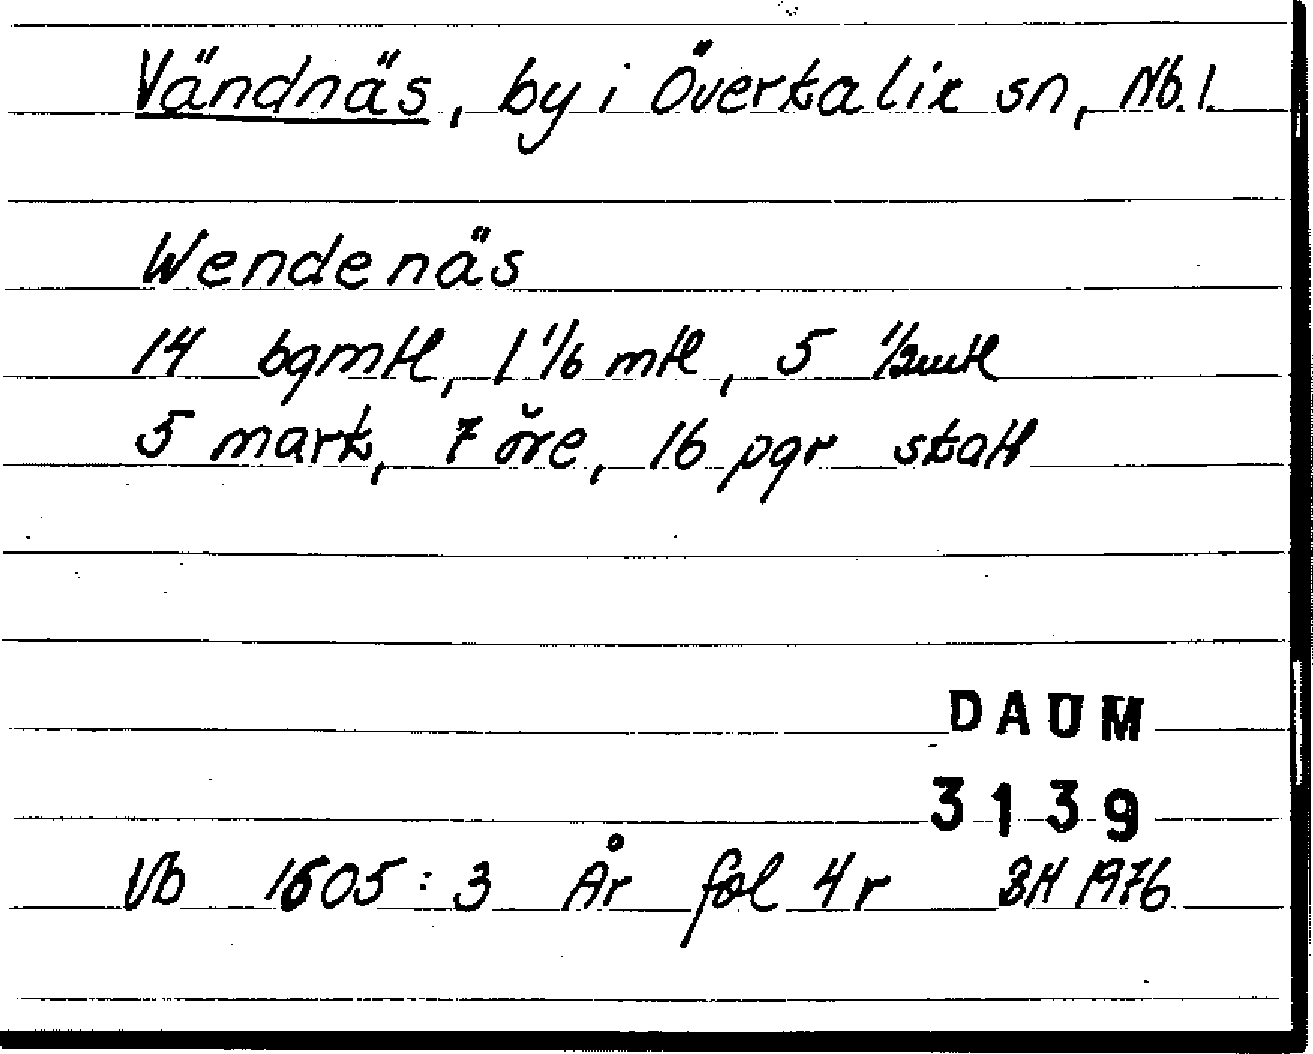 Vändnäs, by i Överkalix sn, Nb. l.
Wendenäs
14 bgmtl, 1 1/6 mtl, 5 1/2mtl
5 mark, 7 öre, 16 pgr skatt
DAUM
3139
Vb 1605:3 År fol 4r BH 1976